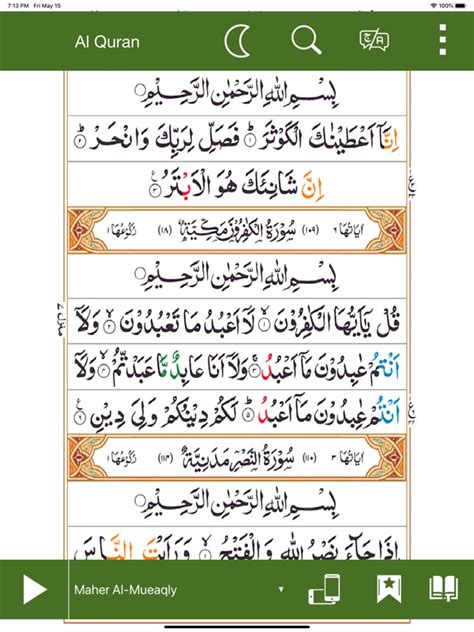 7:13 PM Fri May 15 100%
Al Quran
بِسْمِ اللّٰهِ الرَّحْمٰنِ الرَّحِيْمِ
اِنَّاۤ اَعْطَيْنٰكَ الْكَوْثَرَ ۝۱ فَصَلِّ لِرَبِّكَ وَانْحَرْ ۝۲
اِنَّ شَانِئَكَ هُوَ الْاَبْتَرُ ۝۳
اٰيَاتُهَا ۶ (۱۰۹) سُوْرَةُ الْكٰفِرُوْنَ مَكِّيَّةٌ (۱۸) رُكُوْعُهَا ۱
بِسْمِ اللّٰهِ الرَّحْمٰنِ الرَّحِيْمِ
قُلْ يٰۤاَيُّهَا الْكٰفِرُوْنَ ۝۱ لَاۤ اَعْبُدُ مَا تَعْبُدُوْنَ ۝۲ وَلَاۤ
اَنْتُمْ عٰبِدُوْنَ مَاۤ اَعْبُدُ ۝۳ وَلَاۤ اَنَا عَابِدٌ مَّا عَبَدْتُّمْ ۝۴ وَلَاۤ
اَنْتُمْ عٰبِدُوْنَ مَاۤ اَعْبُدُ ۝۵ لَكُمْ دِيْنُكُمْ وَلِيَ دِيْنِ ۝۶
اٰيَاتُهَا ۳ (۱۱۰) سُوْرَةُ النَّصْرِ مَدَنِيَّةٌ (۱۱۴) رُكُوْعُهَا ۱
بِسْمِ اللّٰهِ الرَّحْمٰنِ الرَّحِيْمِ
اِذَا جَآءَ نَصْرُ اللّٰهِ وَالْفَتْحُ ۝۱ وَرَاَيْتَ النَّاسَ
منزل ۷
Maher Al-Mueaqly